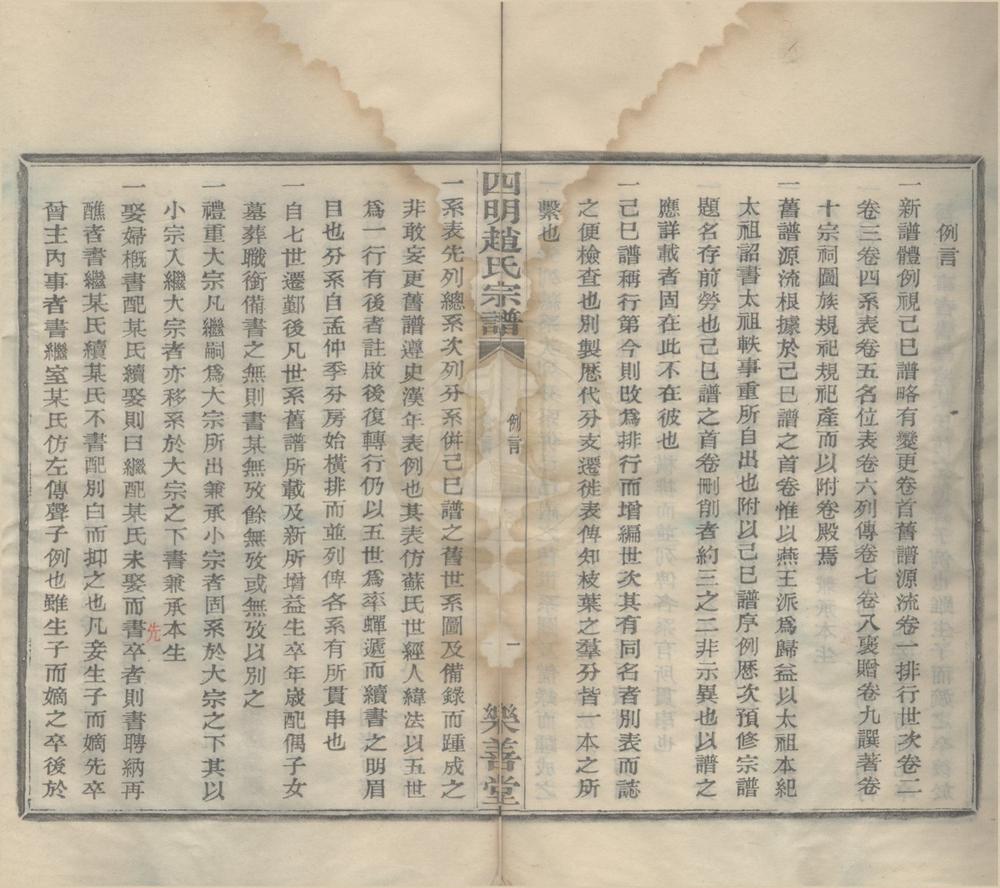 例言
一新譜體例視己巳譜略有變更卷首舊譜源流卷一排行世次卷二
卷三卷四系表卷五名位表卷六列傳卷七卷八襃贈卷九譔著卷
十宗祠圖族規祀規祀產而以附卷殿焉
一舊譜源流根據於己巳譜之首卷惟以燕王派爲歸益以太祖本紀
太祖詔書太祖軼事重所自出也附以己巳譜序例歷次預修宗譜
題名存前勞也己巳譜之首卷刪削者約三之二非示異也以譜之
應詳載者固在此不在彼也
一己巳譜稱行第今則改爲排行而增編世次其有同名者別表而誌
之便檢查也別製歷代分支遷徙表俾知枝葉之羣分皆一本之所
繫也
四明趙氏宗譜
例言
一
樂善堂
一系表先列總系次列分系併己巳譜之舊世系圖及備錄而踵成之
非敢妄更舊譜遵史漢年表例也其表仿蘇氏世經人緯法以五世
爲一行有後者註啟後後復轉行仍以五世爲率蟬遞而續書之明眉
目也分系自孟仲季分房始橫排而並列俾各系有所貫串也
一自七世遷鄞後凡世系舊譜所載及新所增益生卒年歲配偶子女
墓葬職銜備書之無則書某無攷餘無攷或無攷以別之
一禮重大宗凡繼嗣爲大宗所出兼承小宗者固系於大宗之下其以
小宗入繼大宗者亦移系於大宗之下書兼承本生
一娶婦槪書配某氏續娶則曰繼配某氏未娶而書卒者則書聘納再
先
醮者書繼某氏續某氏不書配別白而抑之也凡妾生子而嫡先卒
曾主內事者書繼室某氏仿左傳聲子例也雖生子而嫡之卒後於